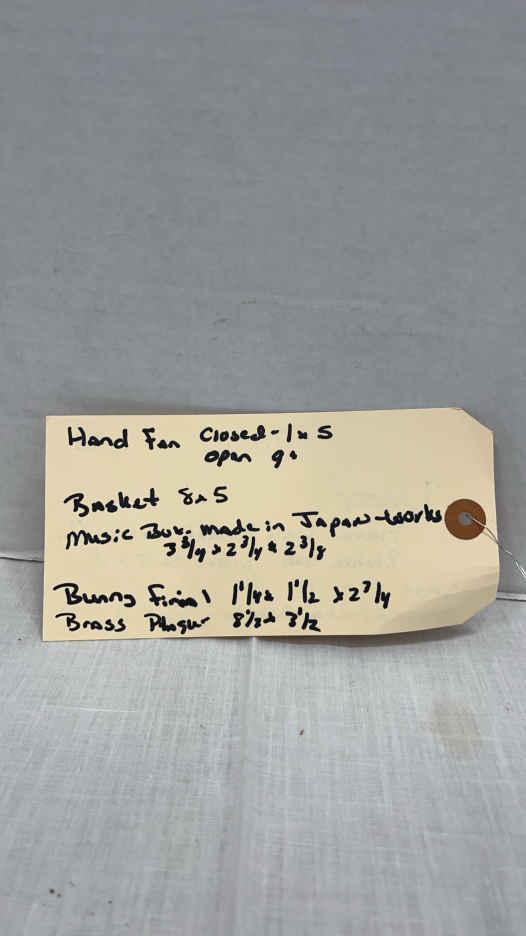 Hand Fan Closed - 1 x 5
open 9"
Basket 8 x 5
Music Box. made in Japan - works
3 3/4 x 2 3/4 x 2 3/8
Bunny Finial 1 1/4 x 1 1/2 x 2 3/4
Brass Plaque 8 1/2 x 3 1/2